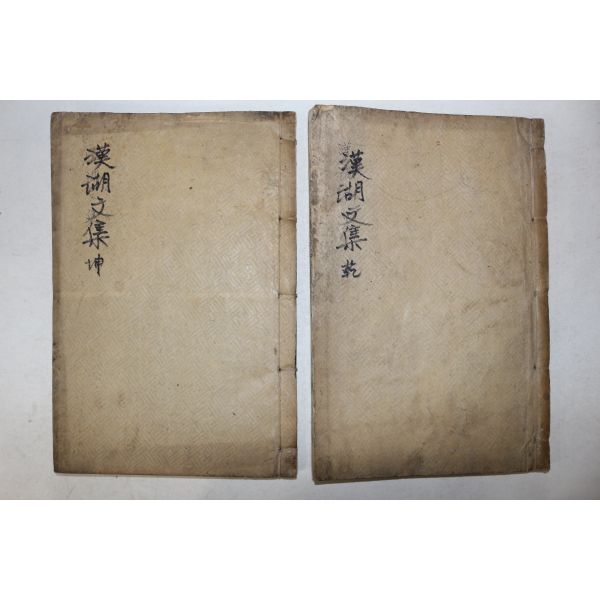 漢湖文集 乾
漢湖文集 坤